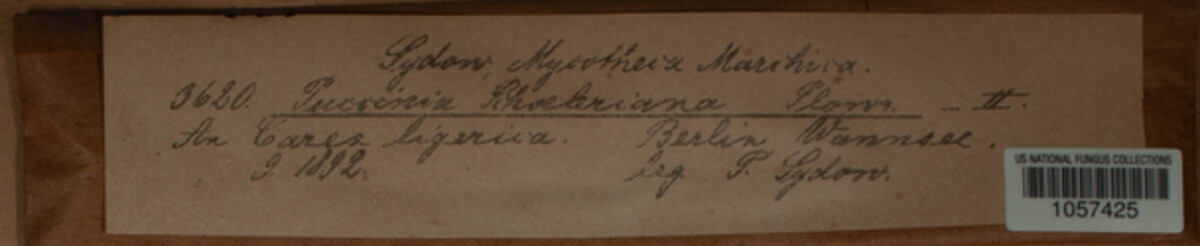 Sydow, Mycotheca Marchica.
3620. Puccinia Schoeleriana Plowr. – II.
An Carex ligerica. Berlin Wannsee.
9. 1892. leg. P. Sydow.
US NATIONAL FUNGUS COLLECTIONS
1057425